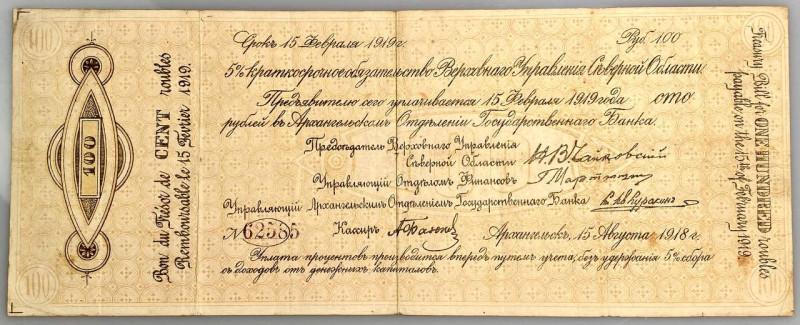 100
100
100
Bon du Trésor de CENT roubles
Remboursable le 15 Février 1919.
Срокъ 15 Февраля 1919 г.
Руб. 100
5% краткосрочное обязательство Верховнаго Управленія Сѣверной Области.
Предъявителю сего уплачивается 15 Февраля 1919 года сто
рублей въ Архангельскомъ Отдѣленіи Государственнаго Банка.
Предсѣдатель Верховнаго Управленія
Сѣверной Области Н В Чайковскій
Управляющій Отдѣломъ Финансовъ
Управляющій Архангельскимъ Отдѣленіемъ Государственнаго Банка
№ 62585
Кассиръ
Архангельскъ, 15 Августа 1918 г.
Уплата процентовъ производится впередъ путемъ учета, безъ удержанія 5% сбора
съ доходовъ отъ денежныхъ капиталовъ.
Treasury Bill for ONE HUNDRED roubles
payable on the 15th of February 1919.
100